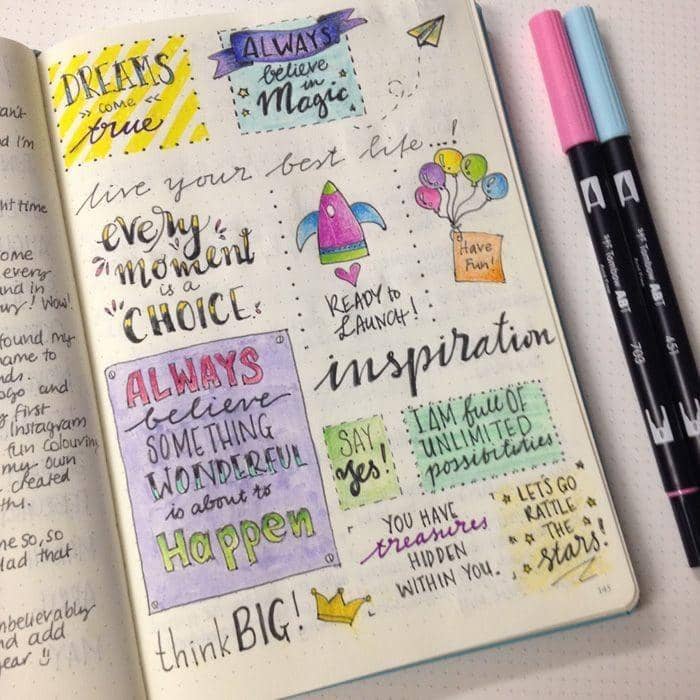 DREAMS
>> come <<
true
ALWAYS
believe
in
Magic
live your best life...!
every
moment
is a
CHOICE
READY to
LAUNCH!
Have
Fun!
inspiration
ALWAYS
believe
SOMETHING
WONDERFUL
is about to
Happen
SAY
yes!
I AM full OF
UNLIMITED
possibilities
YOU HAVE
treasures
HIDDEN
WITHIN YOU.
LET'S GO
RATTLE
THE
stars!
think BIG!
145
can't
nd I'm
ht time
ome
every
und in
ury! Wow!
found my
name to
nds.
ogo and
y first
Instagram
fun colouring
my own
created
ths.
me so, so
lad that
nbelievably
nd add
year
Tombow ABT
703
Tombow ABT
451